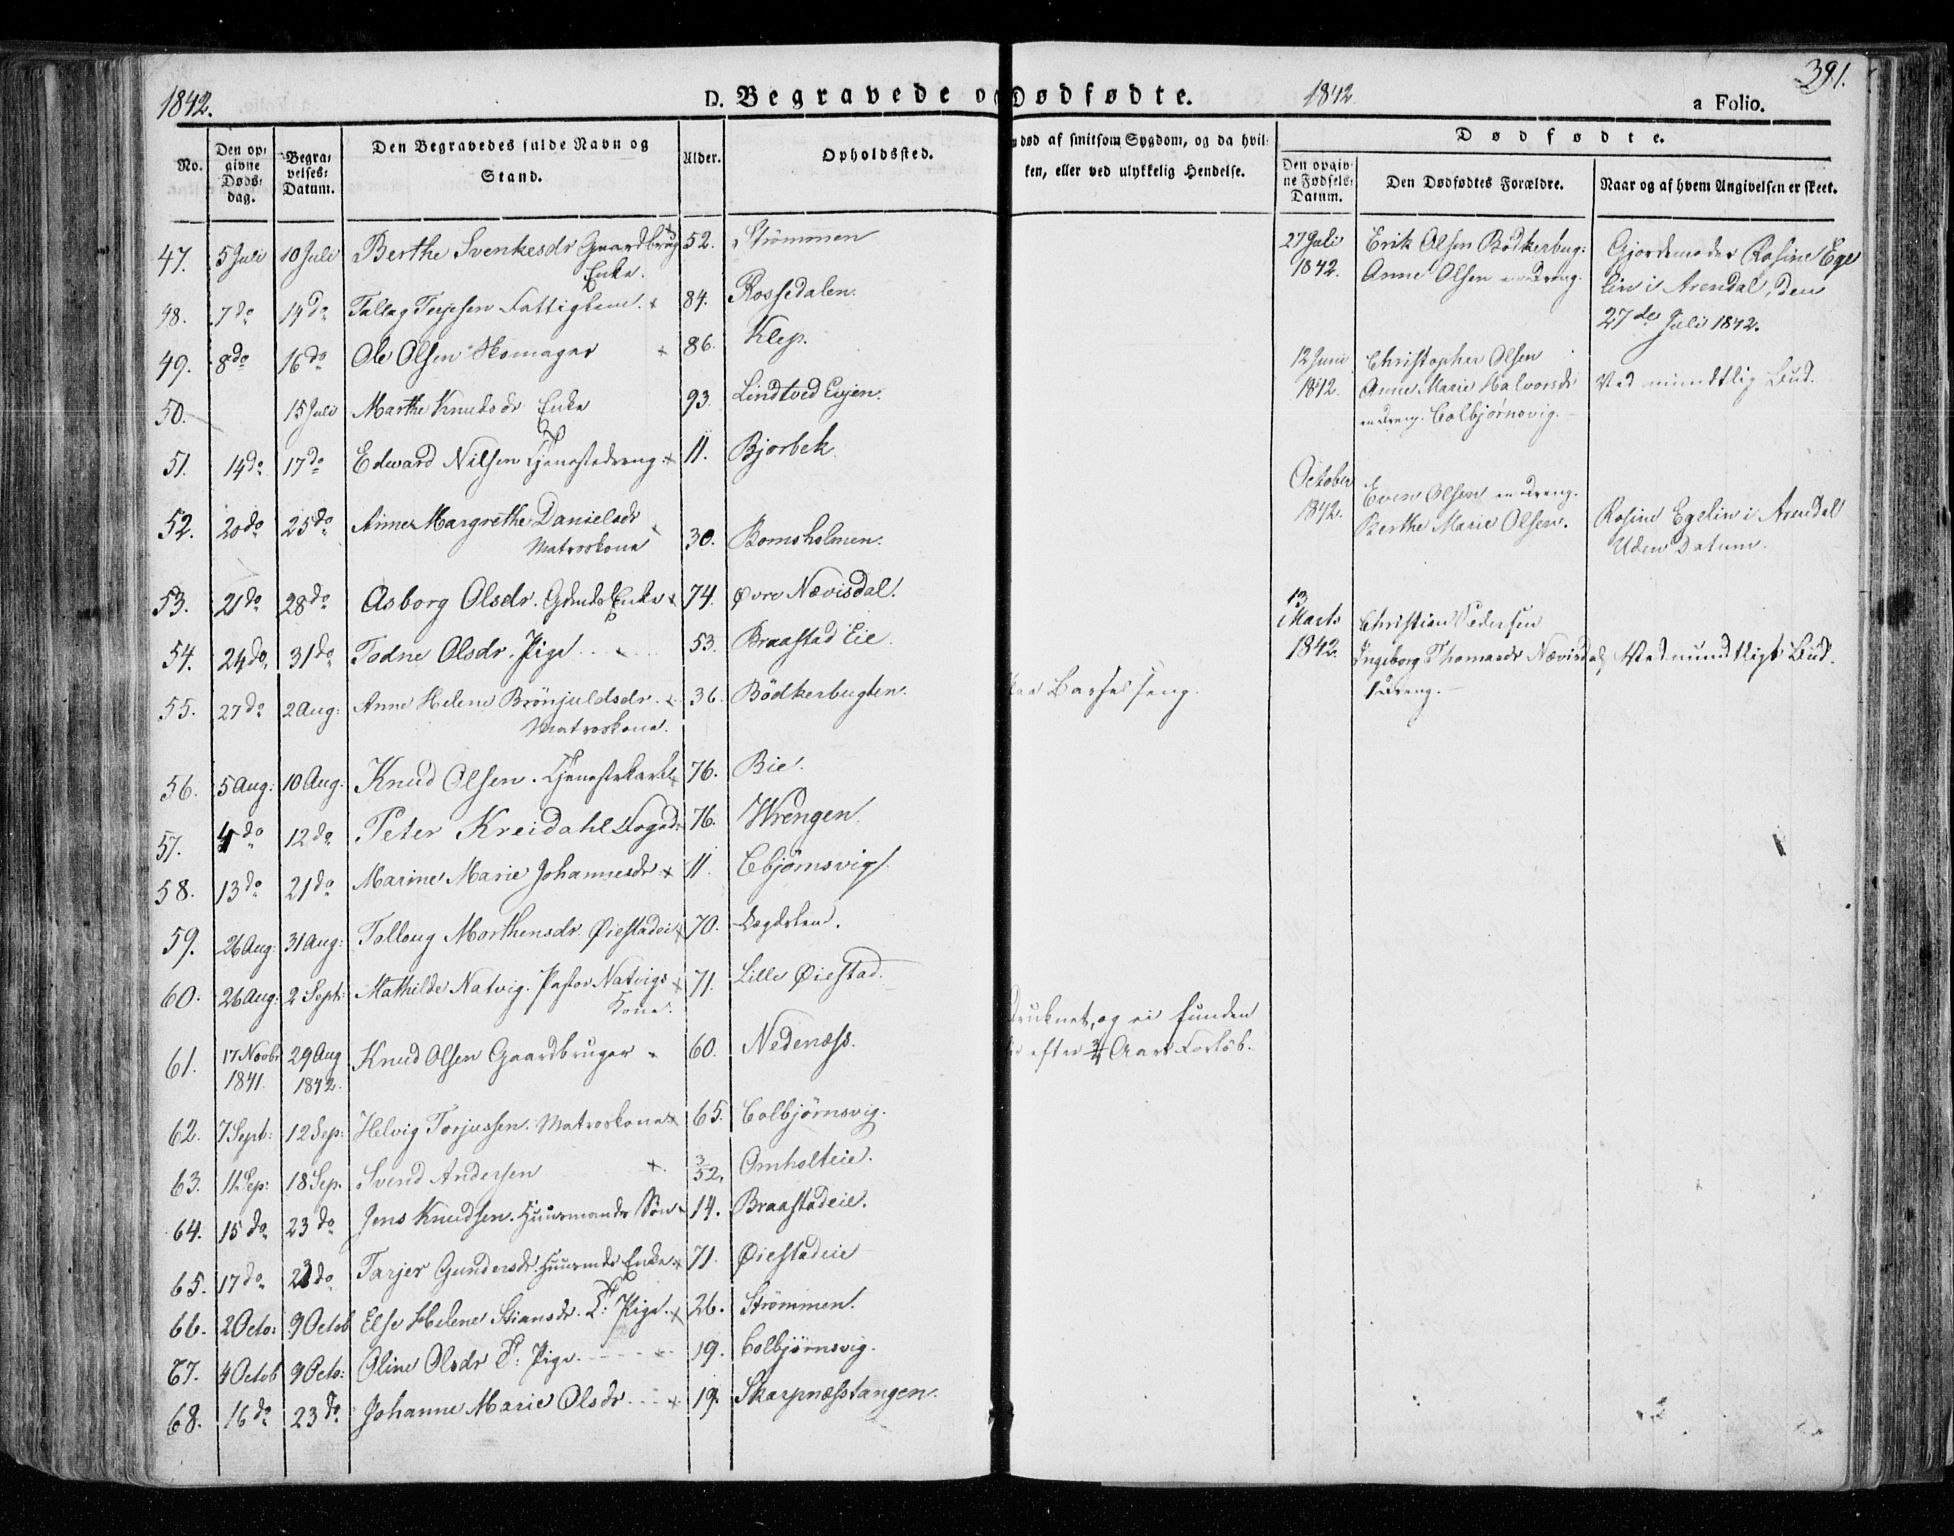 1842.
D. Begravede o Dødfødte.
1842
a Folio.
391.
No.
Den op-
givne
Døds-
dag.
Begra-
velses-
Datum.
Den Begravedes fulde Navn og
Stand.
Alder.
Opholdssted.
død af smitsom Sygdom, og da hvil-
ken, eller ved ulykkelig Hendelse.
Dødfødte.
Den opgiv-
ne Fødsels-
Datum.
Den Dødfødtes Forældre.
Naar og af hvem Angivelsen er skeet.
47. 5 Juli 10 Juli Berthe Svenkesdr Gaardbrug 52. Strømmen
Enke.
48. 7 do 14 do Fattiglem. 84. Rossedalen.
49. 8 do 16 do Ole Olsen Skomager 86. Klep.
50. 15 Juli Marthe Knudsdr Enke 93. Lindtved Eujen.
51. 14 do 17 do Edward Nilsen Tjenestedreng 11. Bjorbek
52. 20 do 25 do Anne Margrethe Danielsdr
Matroskone 30. Bomsholmen.
53. 21 do 28 do Asborg Olsdr. Enke 74. Øvre Nævisdal.
54. 24 do 31 do Todne Olsdr. Pige 53. Braastad Eie
55. 27 do 2 Aug: Anne Helene Brönjuldsdr. 36. Bödkerbugten. Barselseng.
Matroskone.
56. 5 Aug: 10 Aug. Knud Olsen. Tjenestekarl 76. Bie.
57. 4 do 12 do Peter Kreidahl Foged 76. Wrengen.
58. 13 do 21 do Marine Marie Johannesdr 11. Cbjørnsvig.
59. 26 Aug: 31 Aug: Tolloug Morthensdr. Øiestadei 70. Lægdslem.
60. 26 Aug: 2 Sept: Mathilde Natvig. Pastor Natvigs 71. Lille Øiestad.
Kone.
61. 17 Novbr 29 Aug Knud Olsen Gaardbruger 60. Nedenæss. Druknet, og ei funden
1841. 1842. efter 3/4 Aars Forløb.
62. 7 Sept: 12 Sep: Helvig Torjussen. Matroskone 65. Colbjørnsvig.
63. 11 Sep: 18 Sep. Svend Andersen 3/52. Omholteie.
64. 15 do 23 do Jens Knudsen. Huusmands Søn 14. Braastadeie.
65. 17 do 23 do Tarjer Gundersdr. Huusmds Enke 71. Øiestadeie
66. 2 Octo: 9 Octob Else Helene Stiansdr. T: Pige. 26. Strömmen.
67. 4 Octob 9 Octo: Oline Olsdr T: Pige. 19. Colbjørnsvig.
68. 16 do 23 do Johanne Marie Olsdr 19. Skarpnæsstangen.
27 Juli Erik Olsen Bödkerbug: Gjordemoder Rosine Ege
1842. Anne Olsen en Dreng. lin i Arendal, den
27de Juli 1842.
12 Juni Christopher Olsen
1842. Anne Marie Halvorsdr Ved mundtlig Bud.
en Dreng. Colbjørnsvig.
October Even Olsen en Dreng.
1842. Berthe Marie Olsen. Rosine Egelin i Arendal
Uden Datum.
13
Marts Christian Pedersen
1842. Ingiborg Thomasdr Nævisdal Ved mundtligt Bud.
1 Dreng.